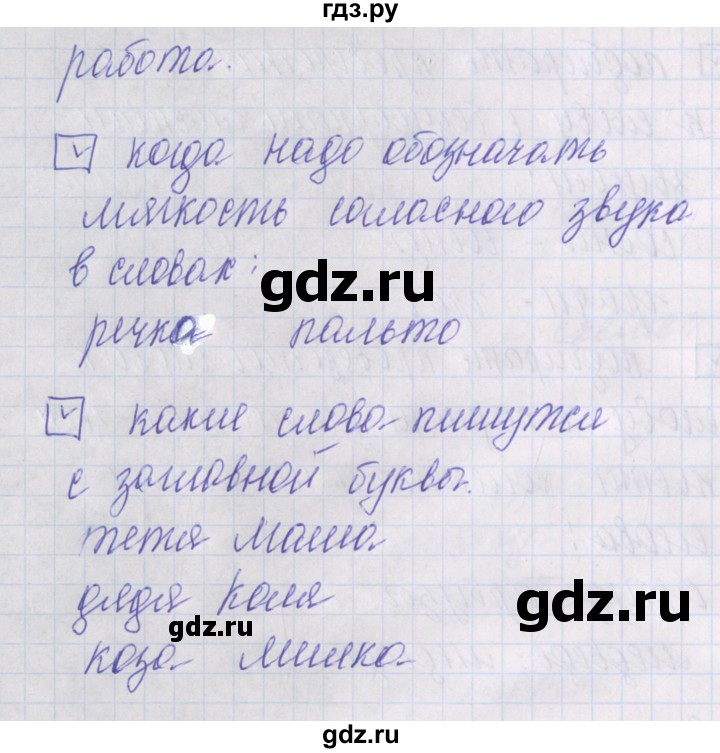 гдз.ру
работа.
✓ когда надо обозначать
мягкость согласного звука
в словах:
gdz.ru
речка пальто
✓ какие слова пишутся
с заглавной буквы.
тетя Маша
дядя Коля
gdz.ru
gdz.ru
коза Милка
gdz.ru